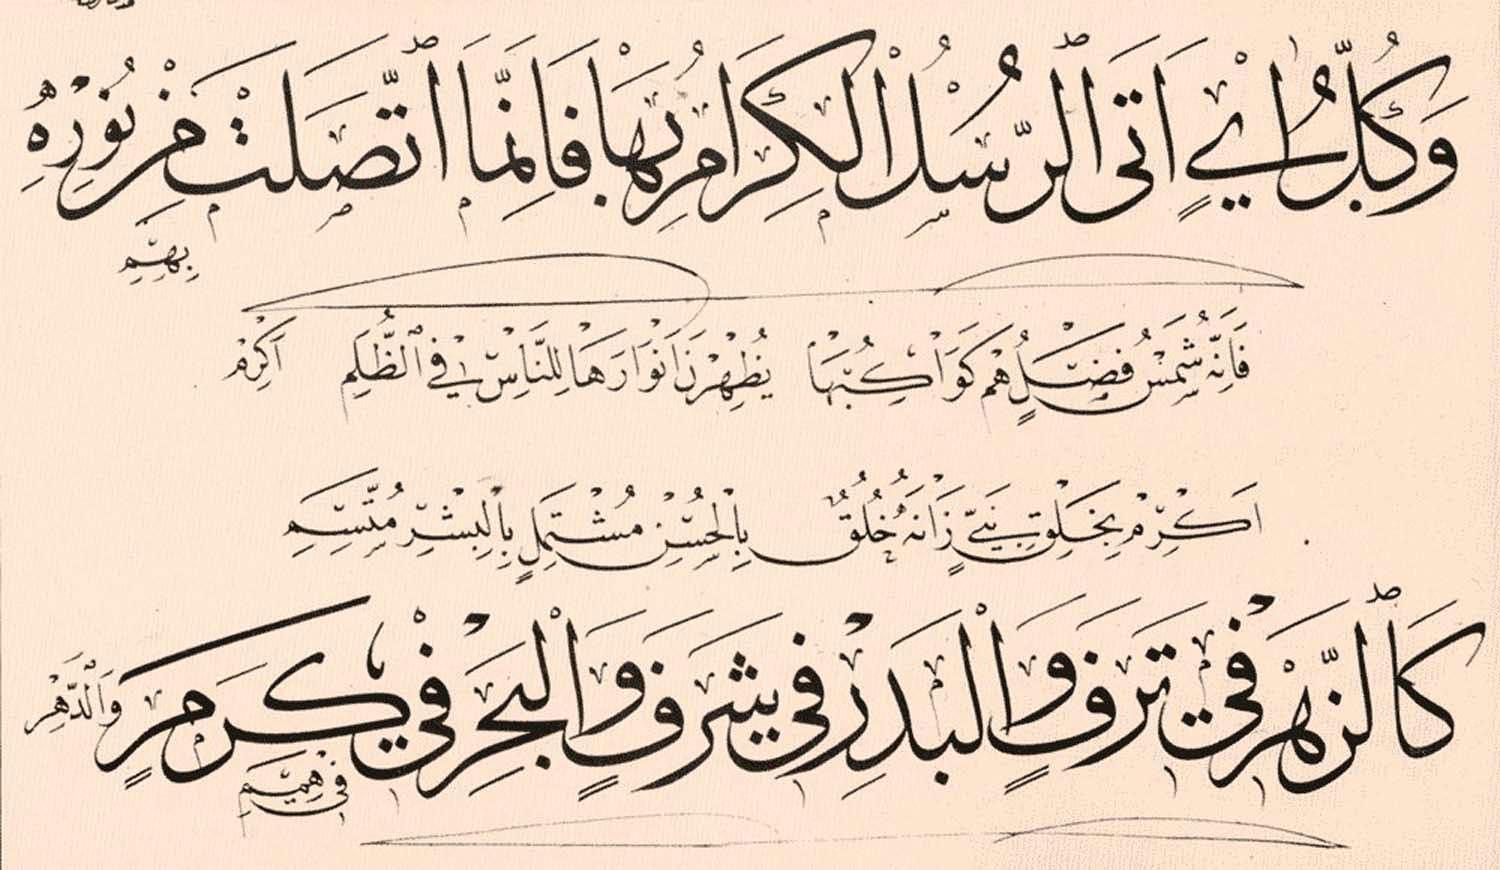 وَكُلُّ اٰيٍ اَتَى الرُّسْلُ الْكِرَامُ بِهَا فَاِنَّمَا اتَّصَلَتْ مِنْ نُوْرِهٖ
بِهِمِ
فَاِنَّهُ شَمْسُ فَضْلٍ هُمْ كَوَاكِبُهَا يُظْهِرْنَ اَنْوَارَهَا لِلنَّاسِ فِي الظُّلَمِ اَكْرِمْ
اَكْرِمْ بِخَلْقِ نَبِيٍّ زَانَهُ خُلُقٌ بِالْحُسْنِ مُشْتَمِلٍ بِالْبِشْرِ مُتَّسِمِ
كَالزَّهْرِ فِي تَرَفٍ وَالْبَدْرِ فِي شَرَفٍ وَالْبَحْرِ فِي كَرَمٍ وَالدَّهْرِ
فِي هِمَمِ